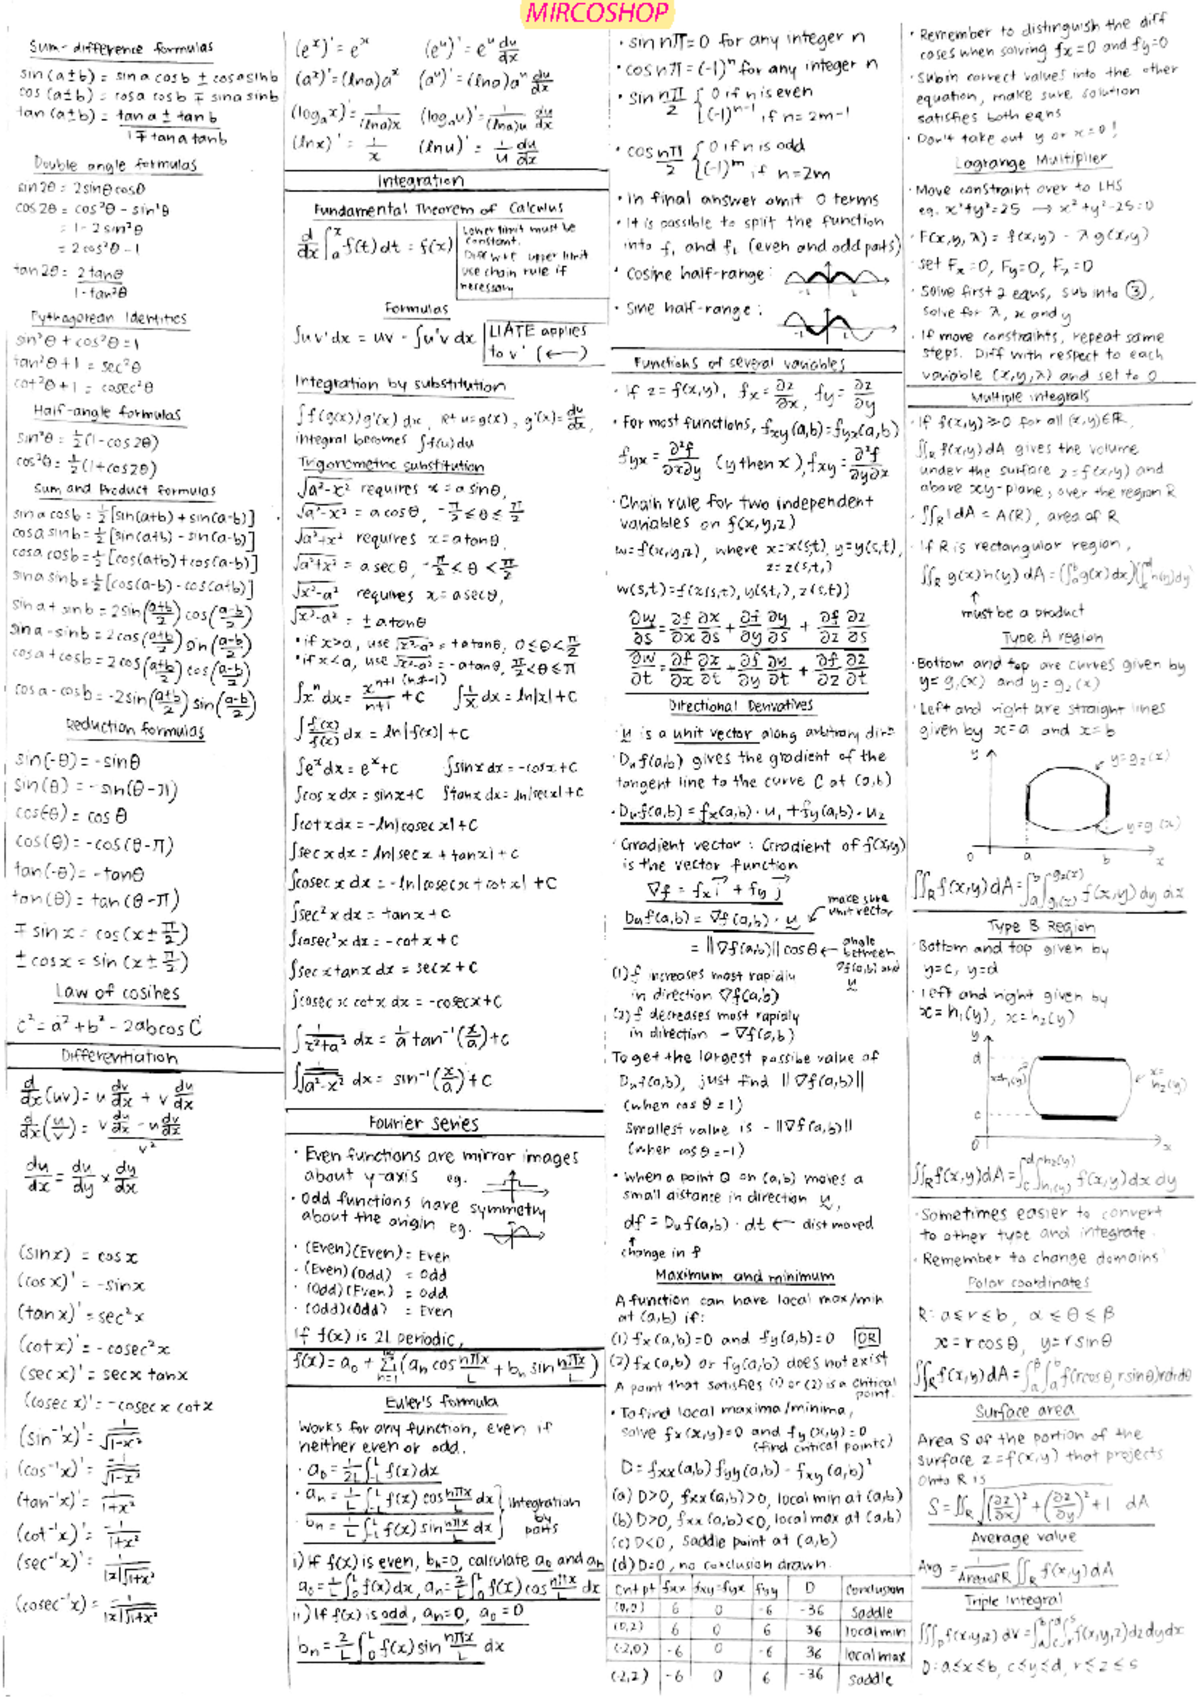 MIRCOSHOP
Sum-difference formulas
sin(a±b) = sin a cos b ± cos a sin b
cos(a±b) = cosa cosb ∓ sina sinb
tan(a±b) = tan a ± tan b
1∓tan a tan b
Double angle formulas
sin2θ = 2sinθcosθ
cos2θ = cos²θ - sin²θ
= 1-2sin²θ
= 2cos²θ-1
tan2θ = 2tanθ
1-tan²θ
Pythagorean Identities
sin²θ + cos²θ = 1
tan²θ + 1 = sec²θ
cot²θ + 1 = cosec²θ
Half-angle formulas
sin²θ = ½(1-cos2θ)
cos²θ = ½(1+cos2θ)
Sum and Product formulas
sin a cosb = ½[sin(a+b) + sin(a-b)]
cosa sinb = ½[sin(a+b) - sin(a-b)]
cosa cosb = ½[cos(a+b)+cos(a-b)]
sina sinb = ½[cos(a-b) - cos(a+b)]
sin a + sin b = 2sin(a+b/2) cos(a-b/2)
sin a - sin b = 2cos(a+b/2) sin(a-b/2)
cosa + cosb = 2cos(a+b/2) cos(a-b/2)
cosa - cosb = -2sin(a+b/2) sin(a-b/2)
Reduction formulas
sin(-θ) = -sinθ
sin(θ) = -sin(θ-π)
cos(-θ) = cosθ
cos(θ) = -cos(θ-π)
tan(-θ) = -tanθ
tan(θ) = tan(θ-π)
∓sin x = cos(x±π/2)
±cos x = sin(x±π/2)
Law of cosines
c² = a² + b² - 2abcosC
Differentiation
d/dx(uv) = u dv/dx + v du/dx
d/dx(u/v) = v du/dx - u dv/dx
v²
du/dx = du/dy × dy/dx
(sinx) = cosx
(cosx)' = -sinx
(tanx)' = sec²x
(cotx)' = -cosec²x
(secx)' = secx tanx
(cosecx)' = -cosecx cotx
(sin⁻¹x)' = 1/√1-x²
(cos⁻¹x)' = -1/√1-x²
(tan⁻¹x)' = 1/1+x²
(cot⁻¹x)' = -1/1+x²
(sec⁻¹x)' = 1/|x|√1+x²
(cosec⁻¹x) = -1/|x|√1+x²
(eˣ)' = eˣ (eᵘ)' = eᵘ du/dx
(aˣ)' = (lna)aˣ (aᵘ)' = (lna)aᵘ du/dx
(logₐx)' = 1/(lna)x (logₐu)' = 1/(lna)u du/dx
(lnx)' = 1/x (lnu)' = 1/u du/dx
Integration
Fundamental Theorem of Calculus
d/dx ∫ₐˣ f(t)dt = f(x)
Lower limit must be
constant.
Diff wrt upper limit
use chain rule if
necessary
Formulas
∫uv'dx = uv - ∫u'v dx
LIATE applies
to v' (←)
Integration by substitution
∫f(g(x))g'(x) dx, let u=g(x), g'(x)=du/dx,
integral becomes ∫f(u)du
Trigonometric substitution
√a²-x² requires x = a sinθ,
√a²-x² = a cosθ, -π/2 ≤ θ ≤ π/2
√a²+x² requires x = a tanθ,
√a²+x² = a secθ, -π/2 < θ < π/2
√x²-a² requires x = a secθ,
√x²-a² = ±a tanθ
• if x>a, use √x²-a² = +a tanθ, 0≤θ<π/2
• if x<a, use √x²-a² = -a tanθ, π/2<θ≤π
∫xⁿdx = xⁿ⁺¹/n+1 (n≠-1) + C ∫1/x dx = ln|x| + C
∫f'(x)/f(x) dx = ln|f(x)| + C
∫eˣdx = eˣ+C ∫sinx dx = -cosx + C
∫cos x dx = sinx + C ∫tanx dx = ln|secx| + C
∫cotx dx = -ln|cosec x| + C
∫sec x dx = ln|sec x + tanx| + C
∫cosec x dx = -ln|cosecx + cotx| + C
∫sec²x dx = tanx + C
∫cosec²x dx = -cotx + C
∫secx tanx dx = secx + C
∫cosec x cotx dx = -cosecx + C
∫1/x²+a² dx = 1/a tan⁻¹(x/a) + C
∫1/√a²-x² dx = sin⁻¹(x/a) + C
Fourier Series
• Even functions are mirror images
about y-axis eg.
• Odd functions have symmetry
about the origin eg.
• (Even)(Even) = Even
• (Even)(Odd) = Odd
• (Odd)(Even) = Odd
• (Odd)(Odd) = Even
If f(x) is 2L periodic,
f(x) = a₀ + Σ(aₙ cos nπx/L + bₙ sin nπx/L)
n=1
Euler's formula
Works for any function, even if
neither even or odd.
• a₀ = 1/2L ∫f(x)dx
• aₙ = 1/L ∫f(x) cos nπx/L dx
• bₙ = 1/L ∫f(x) sin nπx/L dx
integration
by
parts
i) If f(x) is even, bₙ=0, calculate a₀ and aₙ
a₀ = 1/L ∫₀ᴸ f(x)dx, aₙ = 2/L ∫₀ᴸ f(x)cos nπx/L dx
ii) If f(x) is odd, aₙ=0, a₀=0
bₙ = 2/L ∫₀ᴸ f(x) sin nπx/L dx
• sin nπ = 0 for any integer n
• cos nπ = (-1)ⁿ for any integer n
• sin nπ/2 { 0 if n is even
(-1)ᵐ⁻¹ if n = 2m-1
• cos nπ/2 { 0 if n is odd
(-1)ᵐ, if n = 2m
• In final answer omit 0 terms
• It is possible to split the function
into f₁ and f₂ (even and odd parts)
• Cosine half-range:
• Sine half-range:
Functions of several variables
• if z = f(x,y), fx = ∂z/∂x, fy = ∂z/∂y
• For most functions, fxy(a,b) = fyx(a,b)
fyx = ∂²f/∂x∂y (y then x), fxy = ∂²f/∂y∂x
• Chain rule for two independent
variables on f(x,y,z)
w = f(x,y,z), where x=x(s,t), y=y(s,t),
z=z(s,t,)
w(s,t) = f(x(s,t), y(s,t), z(s,t))
∂w/∂s = ∂f/∂x ∂x/∂s + ∂f/∂y ∂y/∂s + ∂f/∂z ∂z/∂s
∂w/∂t = ∂f/∂x ∂x/∂t + ∂f/∂y ∂y/∂t + ∂f/∂z ∂z/∂t
Directional Derivatives
• u is a unit vector along arbitrary dirⁿ
• Duf(a,b) gives the gradient of the
tangent line to the curve C at (a,b)
• Duf(a,b) = fx(a,b)·u₁ + fy(a,b)·u₂
• Gradient vector: Gradient of f(x,y)
is the vector function
∇f = fx i + fy j
make sure
unit vector
Duf(a,b) = ∇f(a,b)·u
= ||∇f(a,b)|| cosθ ← angle
between
∇f(a,b) and
u
(1) f increases most rapidly
in direction ∇f(a,b)
(2) f decreases most rapidly
in direction -∇f(a,b)
To get the largest possible value of
Duf(a,b), just find ||∇f(a,b)||
(when cosθ=1)
Smallest value is -||∇f(a,b)||
(when cosθ=-1)
• when a point Q on (a,b) moves a
small distance in direction u,
df = Duf(a,b)·dt ← dist moved
change in f
Maximum and minimum
A function can have local max/min
at (a,b) if:
(1) fx(a,b)=0 and fy(a,b)=0 OR
(2) fx(a,b) or fy(a,b) does not exist
A point that satisfies (1) or (2) is a critical
point.
• To find local maxima/minima,
solve fx(x,y)=0 and fy(x,y)=0
(find critical points)
D = fxx(a,b)fyy(a,b) - fxy(a,b)²
(a) D>0, fxx(a,b)>0, local min at (a,b)
(b) D>0, fxx(a,b)<0, local max at (a,b)
(c) D<0, saddle point at (a,b)
(d) D=0, no conclusion drawn.
Crit pt fxx fxy=fyx fyy D Conclusion
(0,0) 6 0 -6 -36 saddle
(0,2) 6 0 6 36 local min
(-2,0) -6 0 -6 36 local max
(-2,2) -6 0 6 -36 saddle
• Remember to distinguish the diff
cases when solving fx=0 and fy=0
• Sub in correct values into the other
equation, make sure solution
satisfies both eqns
• Don't take out y or x=0!
Lagrange Multiplier
• Move constraint over to LHS
eg. x²+y²=25 → x²+y²-25=0
• F(x,y,λ) = f(x,y) - λg(x,y)
• set Fx=0, Fy=0, Fλ=0
• Solve first 2 eqns, sub into ③,
solve for λ, x and y
• If more constraints, repeat same
steps. Diff with respect to each
variable (x,y,λ) and set to 0
Multiple integrals
• If f(x,y)≥0 for all (x,y)∈R,
∬R f(x,y)dA gives the volume
under the surface z=f(x,y) and
above xy-plane, over the region R
• ∬R 1 dA = A(R), area of R
• If R is rectangular region,
∬R g(x)h(y) dA = (∫g(x)dx)(∫h(y)dy)
must be a product
Type A region
• Bottom and top are curves given by
y=g₁(x) and y=g₂(x)
• Left and right are straight lines
given by x=a and x=b
y
y=g₂(x)
y=g(x)
0 a b x
∬R f(x,y)dA = ∫ₐᵇ∫ f(x,y) dy dx
Type B Region
• Bottom and top given by
y=c, y=d
• left and right given by
x=h₁(y), x=h₂(y)
y
d
x=h₁(y)
x=
h₂(y)
c
0 x
∬R f(x,y)dA = ∫∫ f(x,y)dx dy
• Sometimes easier to convert
to other type and integrate.
• Remember to change domains
Polar coordinates
R: a≤r≤b, α≤θ≤β
x=rcosθ, y=rsinθ
∬R f(x,y)dA = ∫∫f(rcosθ, rsinθ)rdrdθ
Surface area
Area S of the portion of the
surface z=f(x,y) that projects
onto R is
S = ∬R √(∂z/∂x)² + (∂z/∂y)² + 1 dA
Average value
Avg = 1/Area of R ∬R f(x,y)dA
Triple Integral
∭D f(x,y,z) dV = ∫∫∫f(x,y,z)dzdydx
D: a≤x≤b, c≤y≤d, r≤z≤s